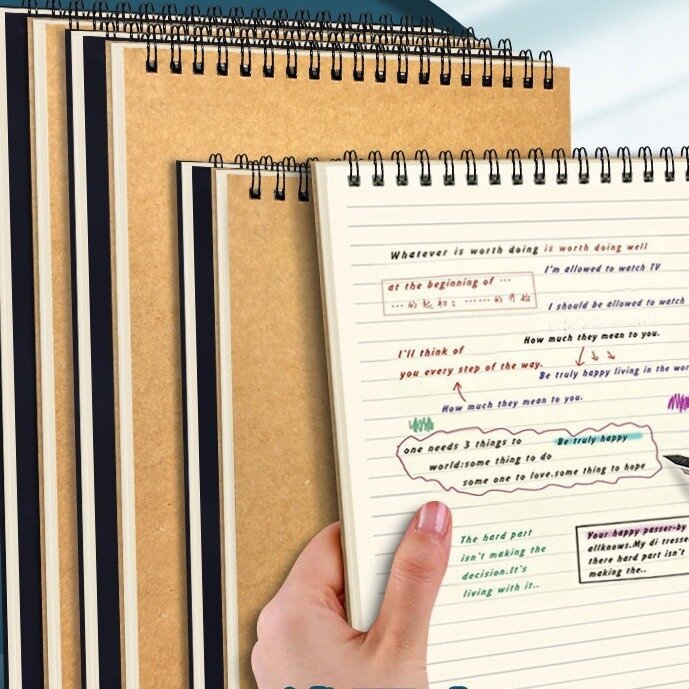 Whatever is worth doing is worth doing well
at the beginning of ...
... 的起初; ...... 的开始
I'm allowed to watch TV
I should be allowed to watch
How much they mean to you.
I'll think of
you every step of the way.
Be truly happy living in the wor
How much they mean to you.
one needs 3 things to Be truly happy
world:some thing to do
some one to love.some thing to hope
The hard part
isn't making the
decision.It's
living with it..
Your happy passer-by
allknows.My di tresse
there hard part isn't
making the..